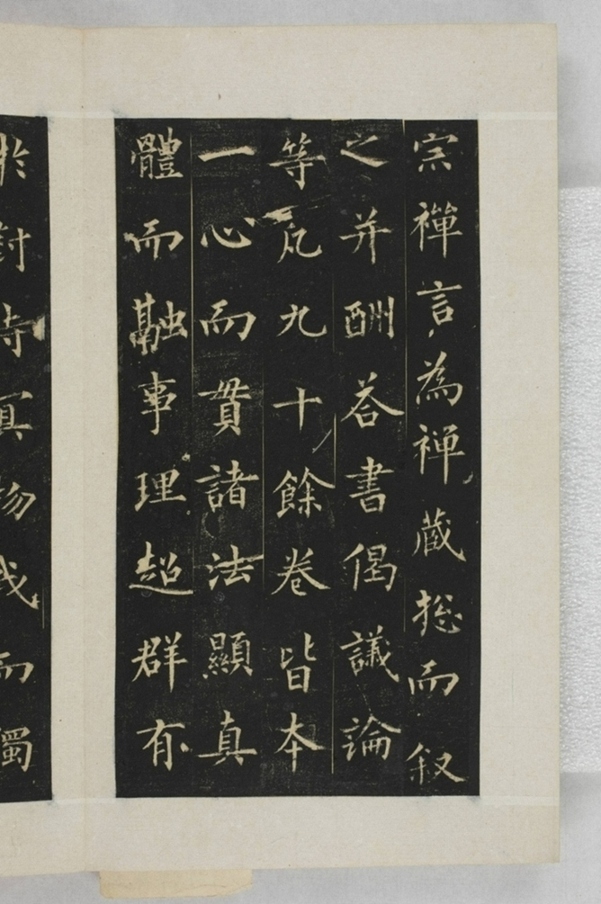 宗禅言為禅蔵揔而叙
之并酬荅書偈議論
等凡九十餘卷皆本
一心而貫諸法顯真
體而融事理超群有
於對待冥物我而獨